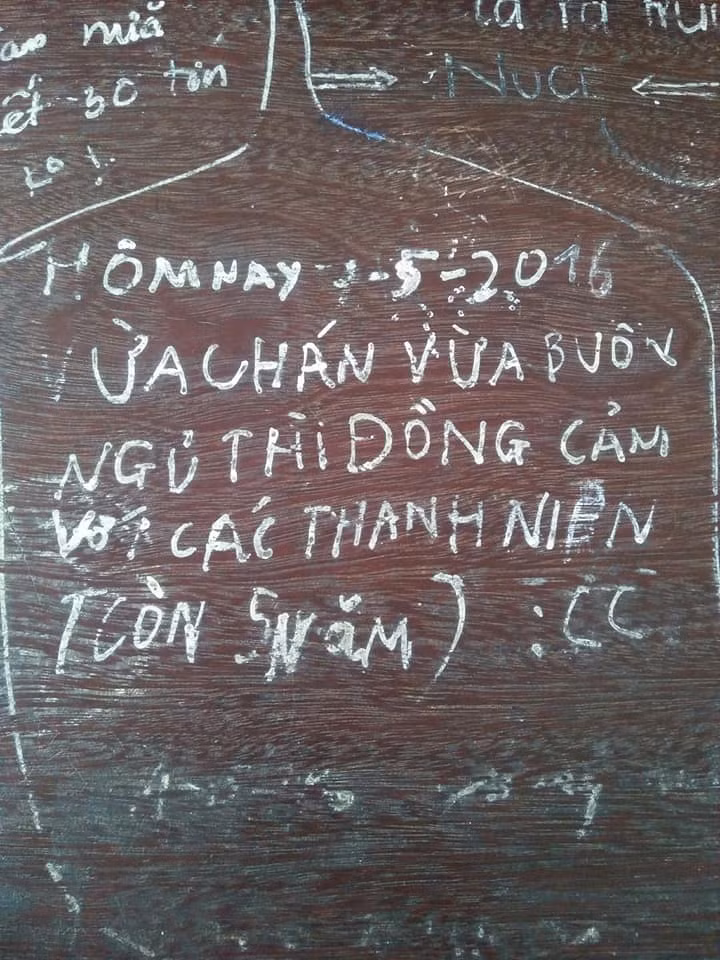 miă
30 tín
là ra
NƯỚC
HÔM NAY -5-2016
ỪA CHÁN VỪA BUỒN
NGỦ THÌ ĐỒNG CẢM
VỚI CÁC THANH NIÊN
(CÒN 5 NĂM) :CC